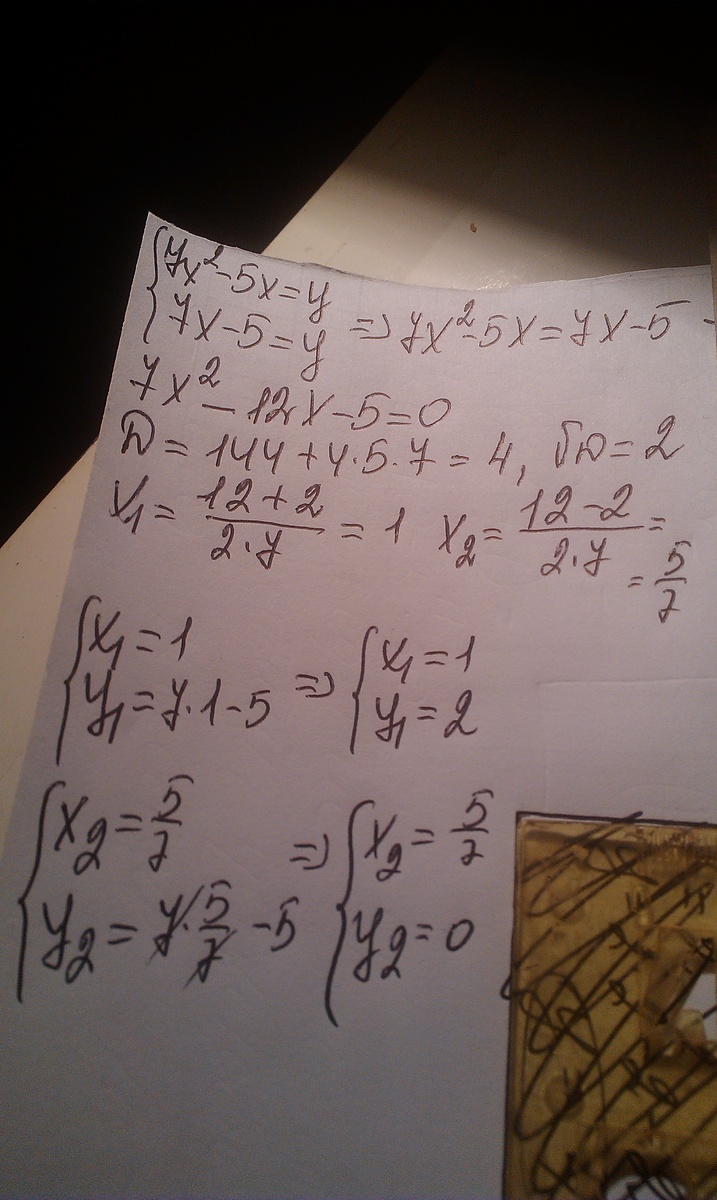 {7x² - 5x = y
{7x - 5 = y => 7x² - 5x = 7x - 5
7x² - 12x - 5 = 0
D = 144 + 4·5·7 = 4, √D = 2
x₁ = (12 + 2)/(2·7) = 1  x₂ = (12 - 2)/(2·7) =
= 5/7
{x₁ = 1
{y₁ = 7·1 - 5 => {x₁ = 1
{y₁ = 2
{x₂ = 5/7
{y₂ = 7·5/7 - 5 => {x₂ = 5/7
{y₂ = 0